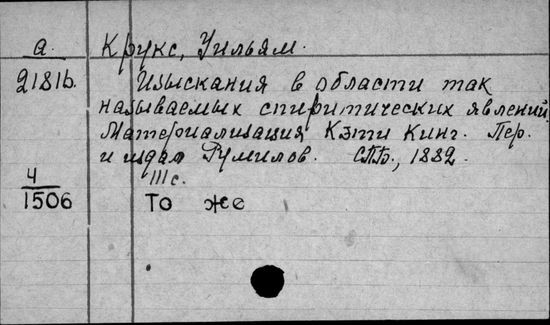 а. Крукс, Уильям.
2181б. Изыскания в области так
называемых спиритических явлений.
Материализация Кэти Кинг. Пер.
и издал СПБ., 1882.
4 с.
1506 То же